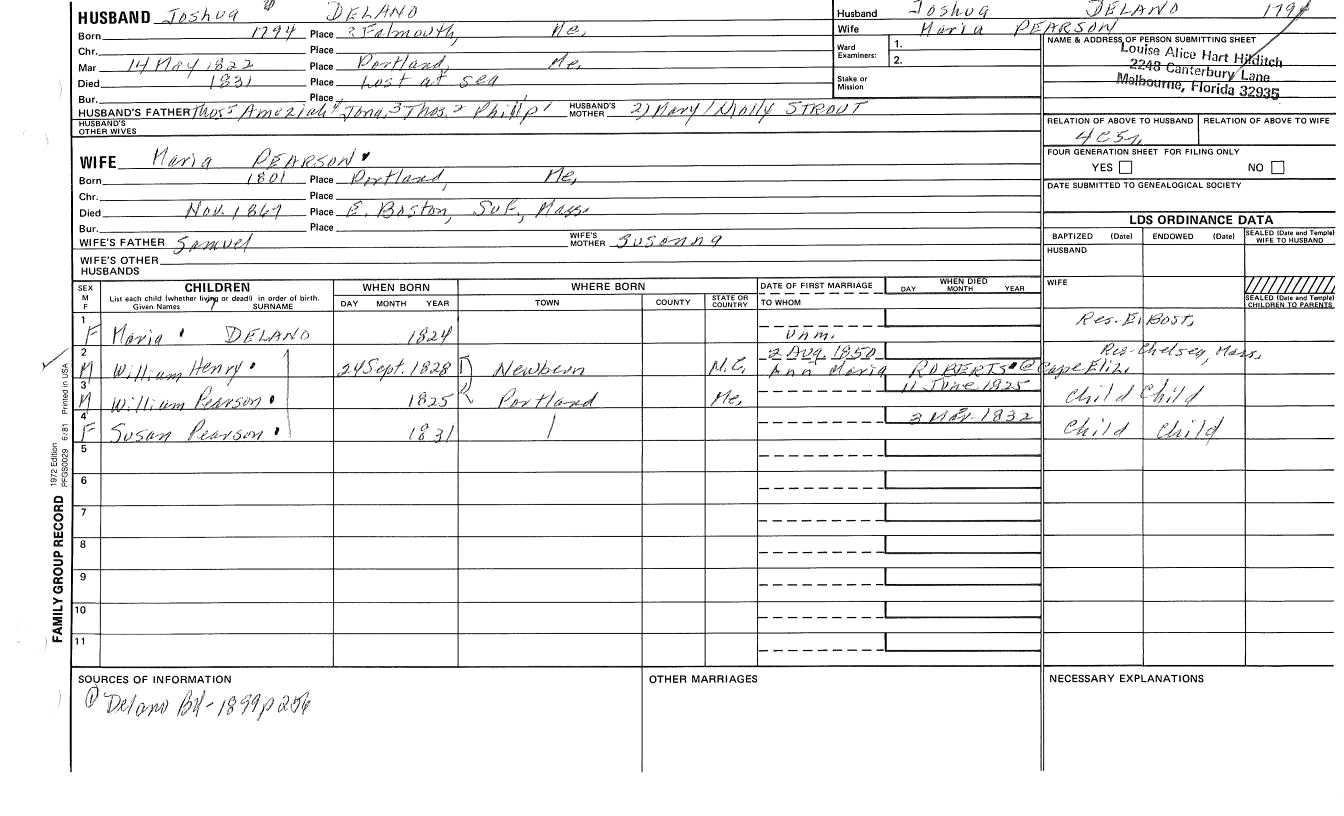 HUSBAND Joshua DELANO
Born 1794 Place ? Falmouth, Me.
Chr. Place
Mar 14 May 1822 Place Portland, Me.
Died 1831 Place Lost at sea
Bur. Place
HUSBAND'S FATHER Thos⁵ Amaziah⁴ Jona³ Thos² Philip¹ HUSBAND'S MOTHER 2) Mary/Molly STROUT
HUSBAND'S OTHER WIVES
WIFE Maria PEARSON
Born 1801 Place Portland, Me.
Chr. Place
Died Nov. 1867 Place E. Boston, Suf., Mass.
Bur. Place
WIFE'S FATHER Samuel WIFE'S MOTHER Susanna
WIFE'S OTHER HUSBANDS
Husband Joshua DELANO 1794
Wife Maria PEARSON
Ward Examiners: 1.
2.
Stake or Mission
NAME & ADDRESS OF PERSON SUBMITTING SHEET
Louise Alice Hart Hilditch
2248 Canterbury Lane
Malbourne, Florida 32935
RELATION OF ABOVE TO HUSBAND RELATION OF ABOVE TO WIFE
4C5r
FOUR GENERATION SHEET FOR FILING ONLY
YES NO
DATE SUBMITTED TO GENEALOGICAL SOCIETY
LDS ORDINANCE DATA
BAPTIZED (Date) ENDOWED (Date) SEALED (Date and Temple) WIFE TO HUSBAND
HUSBAND
WIFE
SEALED (Date and Temple) CHILDREN TO PARENTS
SEX M F CHILDREN WHEN BORN WHERE BORN DATE OF FIRST MARRIAGE WHEN DIED
List each child (whether living or dead) in order of birth.
Given Names SURNAME DAY MONTH YEAR TOWN COUNTY STATE OR COUNTRY TO WHOM DAY MONTH YEAR
1 F Maria DELANO 1824 Unm. Res. E. Bost.
2 M William Henry 24 Sept. 1828 Newbern N.C. 2 Aug. 1850 Ann Maria ROBERTS @ Cape Eliz. Res. Chelsey, Mass.
3 M William Pearson 1825 Portland Me. 11 June 1825 Child Child
4 F Susan Pearson 1831 3 Mar. 1832 Child Child
5
6
7
8
9
10
11
SOURCES OF INFORMATION OTHER MARRIAGES NECESSARY EXPLANATIONS
① Delano Bk - 1899 p 256
FAMILY GROUP RECORD
1972 Edition
PFGS0029 6/81 Printed in USA